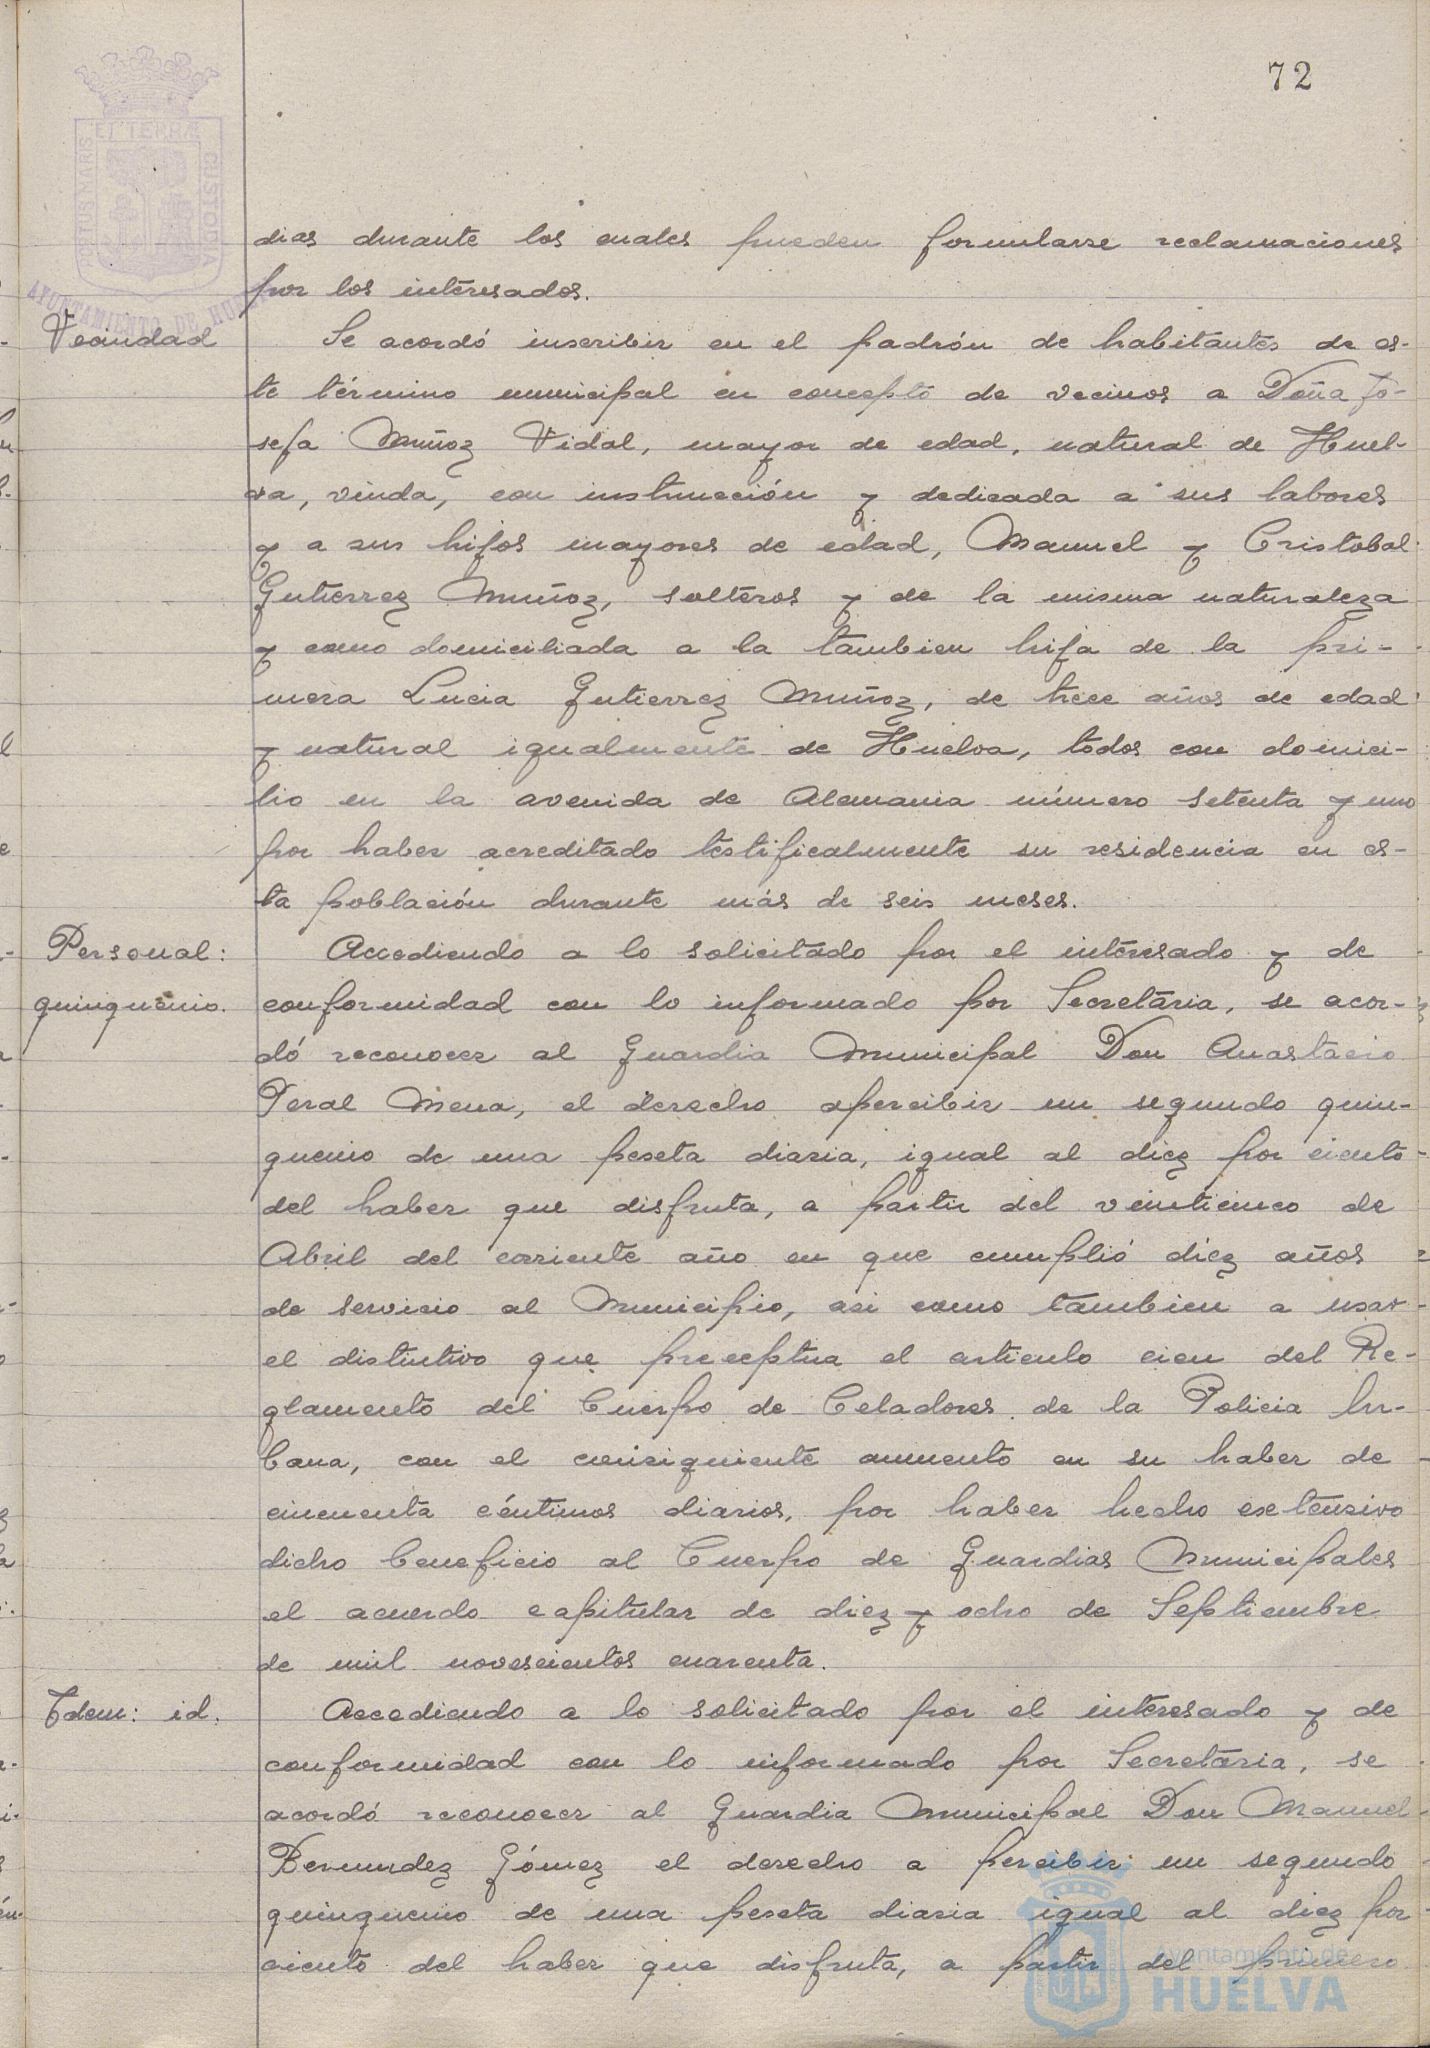 72
PORTUS MARIS
ET TERRÆ
CUSTODIA
AYUNTAMIENTO DE
dias durante los cuales pueden formularse reclamaciones
por los interesados.
Vecindad
Se acordó inscribir en el padrón de habitantes de es-
te término municipal en concepto de vecinos a Doña Jo-
sefa Muñoz Vidal, mayor de edad, natural de Huel-
va, viuda, con instrucción y dedicada a sus labores
y a sus hijos mayores de edad, Manuel y Cristobal
Gutierrez Muñoz, solteros y de la misma naturaleza
y como domiciliada a la tambien hija de la pri-
mera Lucia Gutierrez Muñoz, de trece años de edad
y natural igualmente de Huelva, todos con domici-
lio en la avenida de Alemania número setenta y uno
por haber acreditado testificalmente su residencia en es-
ta población durante más de seis meses.
Personal:
quinquenio.
Accediendo a lo solicitado por el interesado y de
conformidad con lo informado por Secretaria, se acor-
dó reconocer al Guardia Municipal Don Anastacio
Peral Mena, el derecho apercibir un segundo quin-
quenio de una peseta diaria, igual al diez por ciento
del haber que disfruta, a partir del veinticinco de
Abril del corriente año en que cumplió diez años
de servicio al Municipio, asi como tambien a usar
el distintivo que preceptua el articulo cien del Re-
glamento del Cuerpo de Celadores de la Policia Ur-
bana, con el consiguiente aumento en su haber de
cincuenta céntimos diarios, por haber hecho extensivo
dicho beneficio al Cuerpo de Guardias Municipales
el acuerdo capitular de diez y ocho de Septiembre
de mil novescientos cuarenta.
Idem: id.
Accediendo a lo solicitado por el interesado y de
conformidad con lo informado por Secretaria, se
acordó reconocer al Guardia Municipal Don Manuel
Bermudez Gómez el derecho a percibir un segundo
quinquenio de una peseta diaria igual al diez por
ciento del haber que disfruta, a partir del primero
Ayuntamiento de
HUELVA